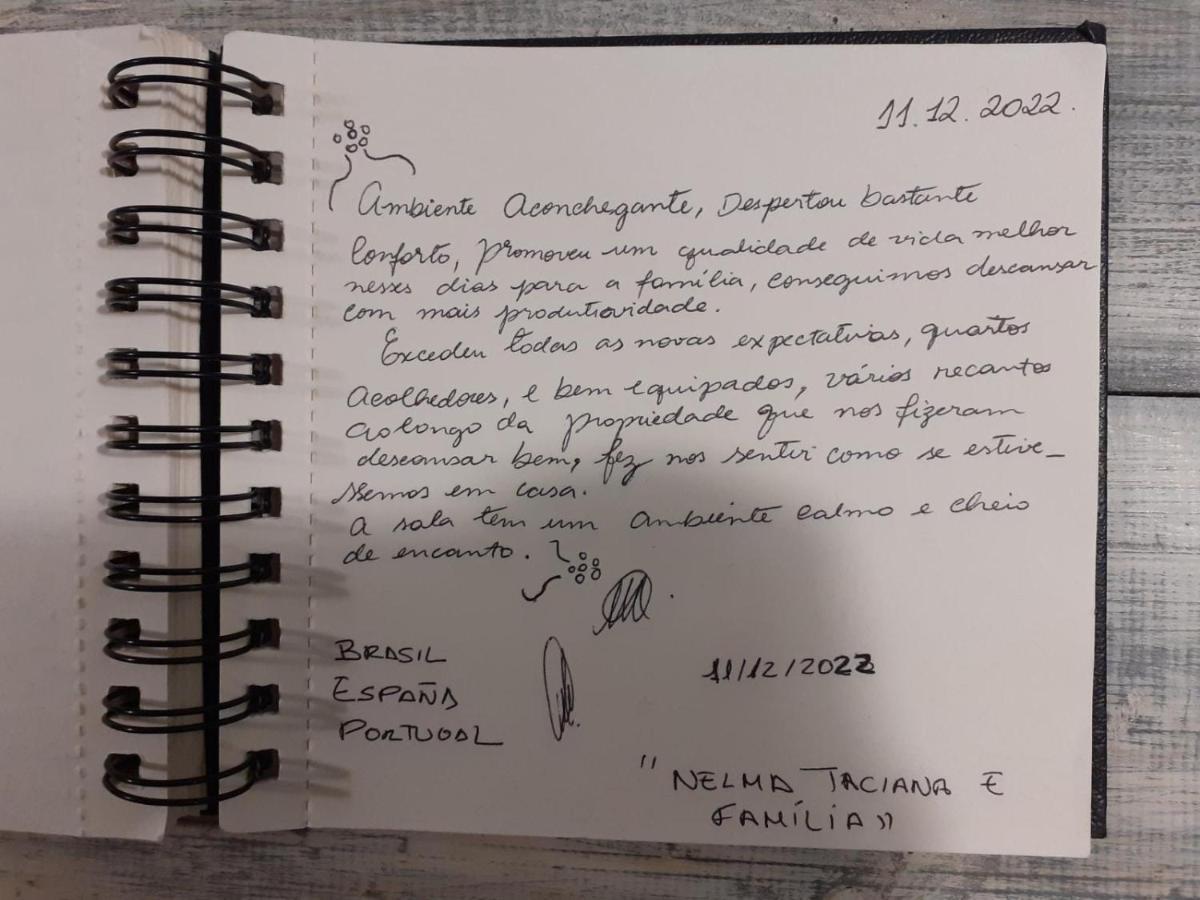 11.12.2022.
Ambiente Aconchegante, Despertou bastante
Conforto, promoveu um qualidade de vida melhor
nesses dias para a família, conseguimos descansar
com mais produtividade.
Excedeu todas as novas expectativas, quartos
Acolhedores, e bem equipados, vários recantos
ao longo da propriedade que nos fizeram
descansar bem, fez nos sentir como se estive_
ssemos em casa.
A sala tem um ambiente calmo e cheio
de encanto.
BRASIL
ESPAÑA
PORTUGAL
11/12/2022
"NELMA TACIANA E
FAMÍLIA"